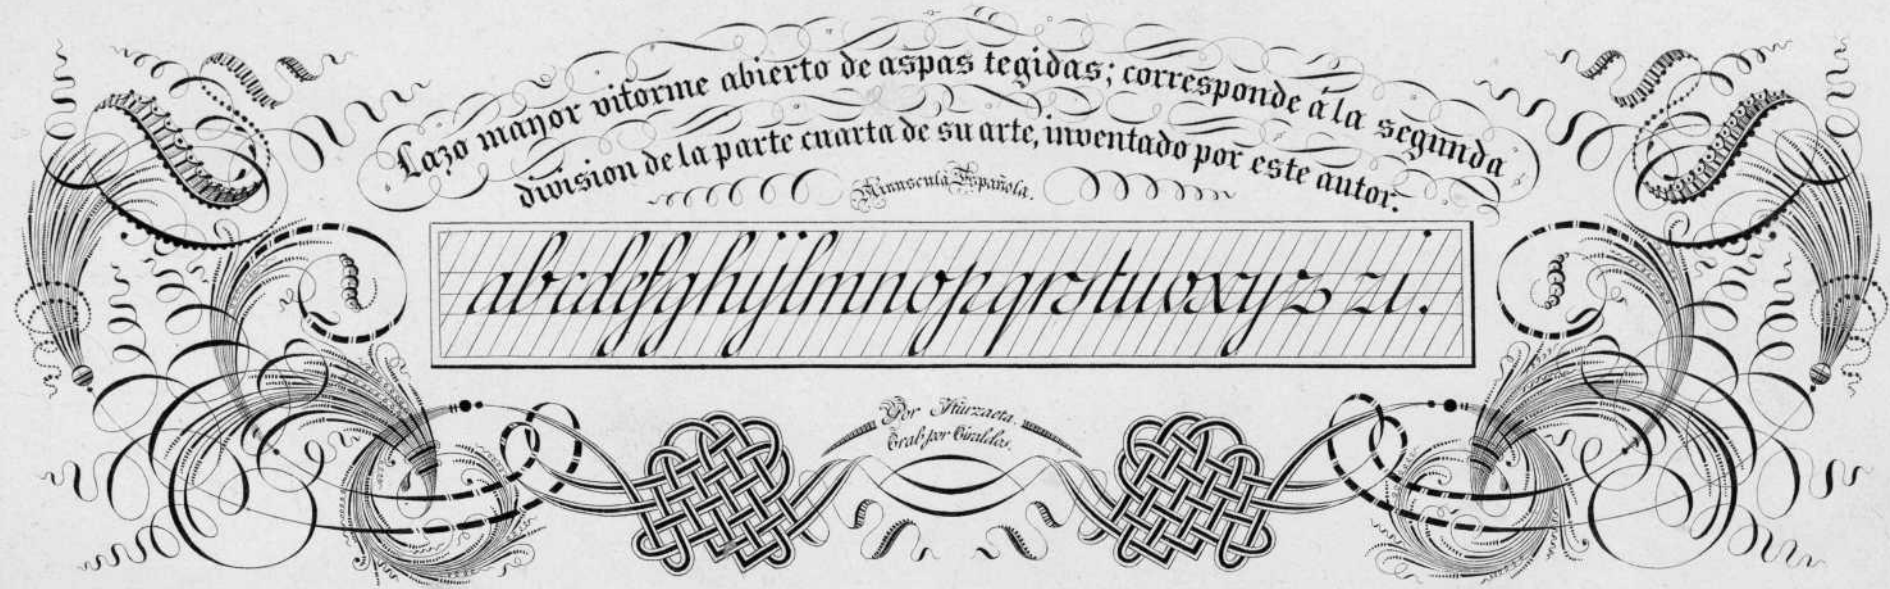 Lazo mayor vitorme abierto de aspas tegidas; corresponde á la segunda
division de la parte cuarta de su arte, inventado por este autor.
Minuscula Española.
abcdefghijlmnopqrstuvxyz z i.
Por Iturzaeta.
Grab. por Giraldos.